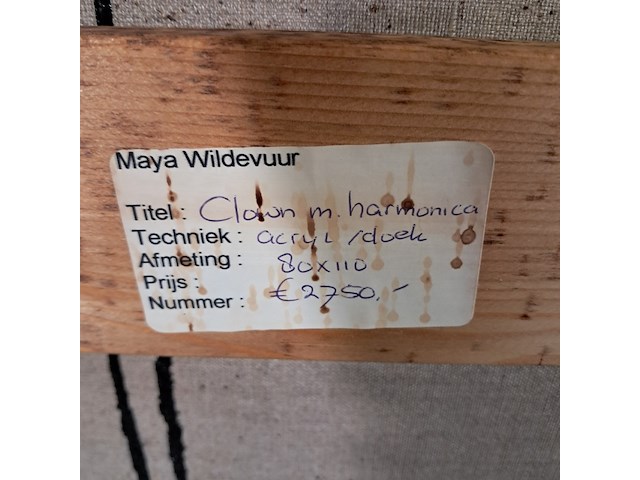 Maya Wildevuur
Titel : Clown m. harmonica
Techniek : acryl /doek
Afmeting : 80x110
Prijs : € 2750,-
Nummer :